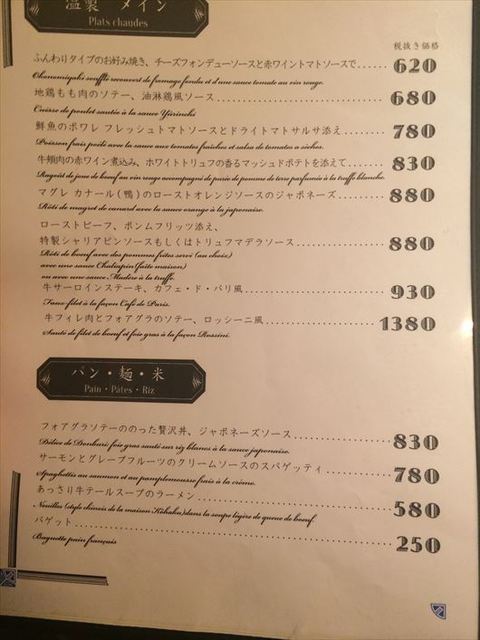 温製 メイン
Plats chaudes
税抜き価格
ふんわりタイプのお好み焼き、チーズフォンデューソースと赤ワイントマトソースで......620
Okonomiyaki soufflé recouvert de fromage fondu et d'une sauce tomate au vin rouge.
地鶏もも肉のソテー、油淋鶏風ソース......680
Cuisse de poulet sautée à la sauce Yûrinchi
鮮魚のポワレ フレッシュトマトソースとドライトマトサルサ添え......780
Poisson frais poêlé avec la sauce aux tomates fraîches et salsa de tomates séchées.
牛頬肉の赤ワイン煮込み、ホワイトトリュフの香るマッシュドポテトを添えて......830
Ragoût de joue de bœuf au vin rouge accompagné de purée de pomme de terre parfumée à la truffe blanche.
マグレ カナール(鴨)のローストオレンジソースのジャポネーズ......880
Rôti de magret de canard avec la sauce orange à la japonaise.
ローストビーフ、ポンムフリッツ添え、
特製シャリアピンソースもしくはトリュフマデラソース......880
Rôti de bœuf avec des pommes frites servi (au choix)
avec une sauce Chaliapin (faite maison)
ou avec une sauce Madère à la truffe.
牛サーロインステーキ、カフェ・ド・パリ風......930
Faux-filet à la façon Café de Paris.
牛フィレ肉とフォアグラのソテー、ロッシーニ風......1380
Sauté de filet de bœuf et foie gras à la façon Rossini.
パン・麺・米
Pain・Pâtes・Riz
フォアグラソテーののった贅沢丼、ジャポネーズソース......830
Délice de Donburi: foie gras sauté sur riz blanc à la sauce japonaise.
サーモンとグレープフルーツのクリームソースのスパゲッティ......780
Spaghettis au saumon et au pamplemousse frais à la crème.
あっさり牛テールスープのラーメン......580
Nouilles (style chinois de la maison Kibaku) dans la soupe légère de queue de bœuf.
バゲット......250
Baguette pain français